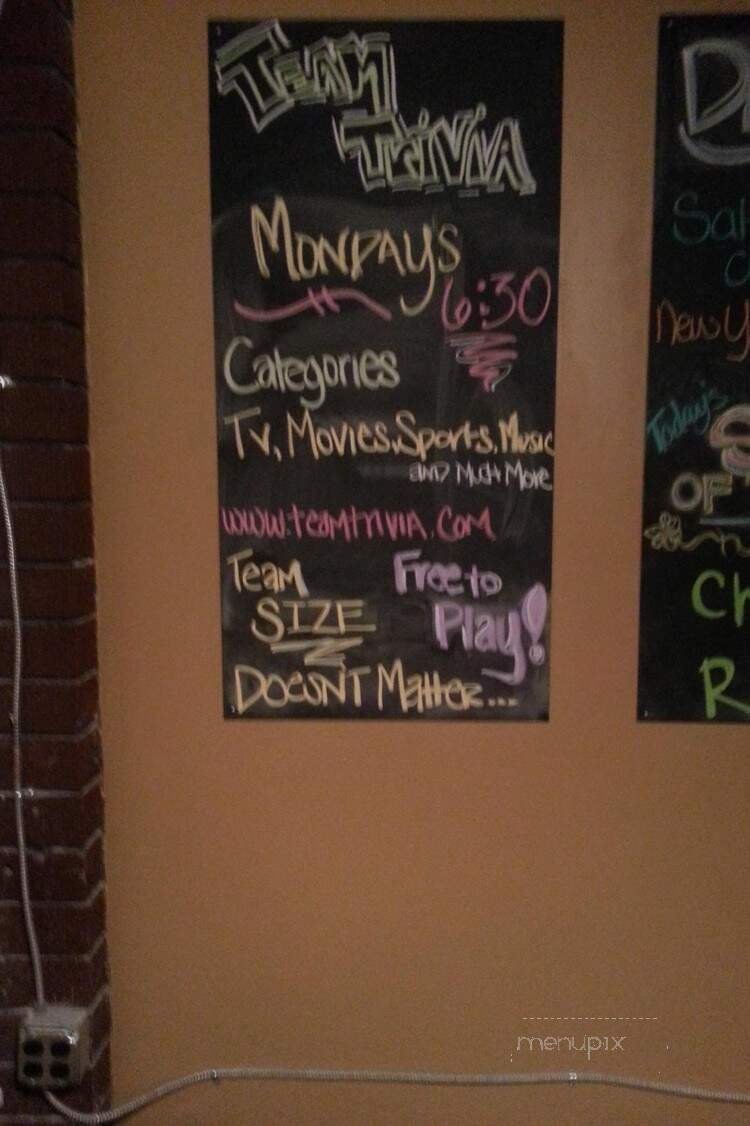 Team
Trivia
Monday's
6:30
Categories
Tv, Movies, Sports, Music
and Much More
www.teamtrivia.com
Team
Size
Doesn't Matter...
Free to
Play!
D
Sal
C
New Y
Today's
S
OF
Ch
R
menupix